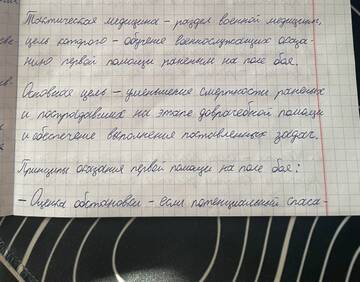 Тактическая медицина - раздел военной медицины,
цель которого - обучение военнослужащих оказа-
нию первой помощи раненым на поле боя.
Основная цель - уменьшение смертности раненых
и пострадавших на этапе доврачебной помощи
и обеспечение выполнения поставленных задач.
Принципы оказания первой помощи на поле боя:
- Оценка обстановки - если потенциальный спаса-